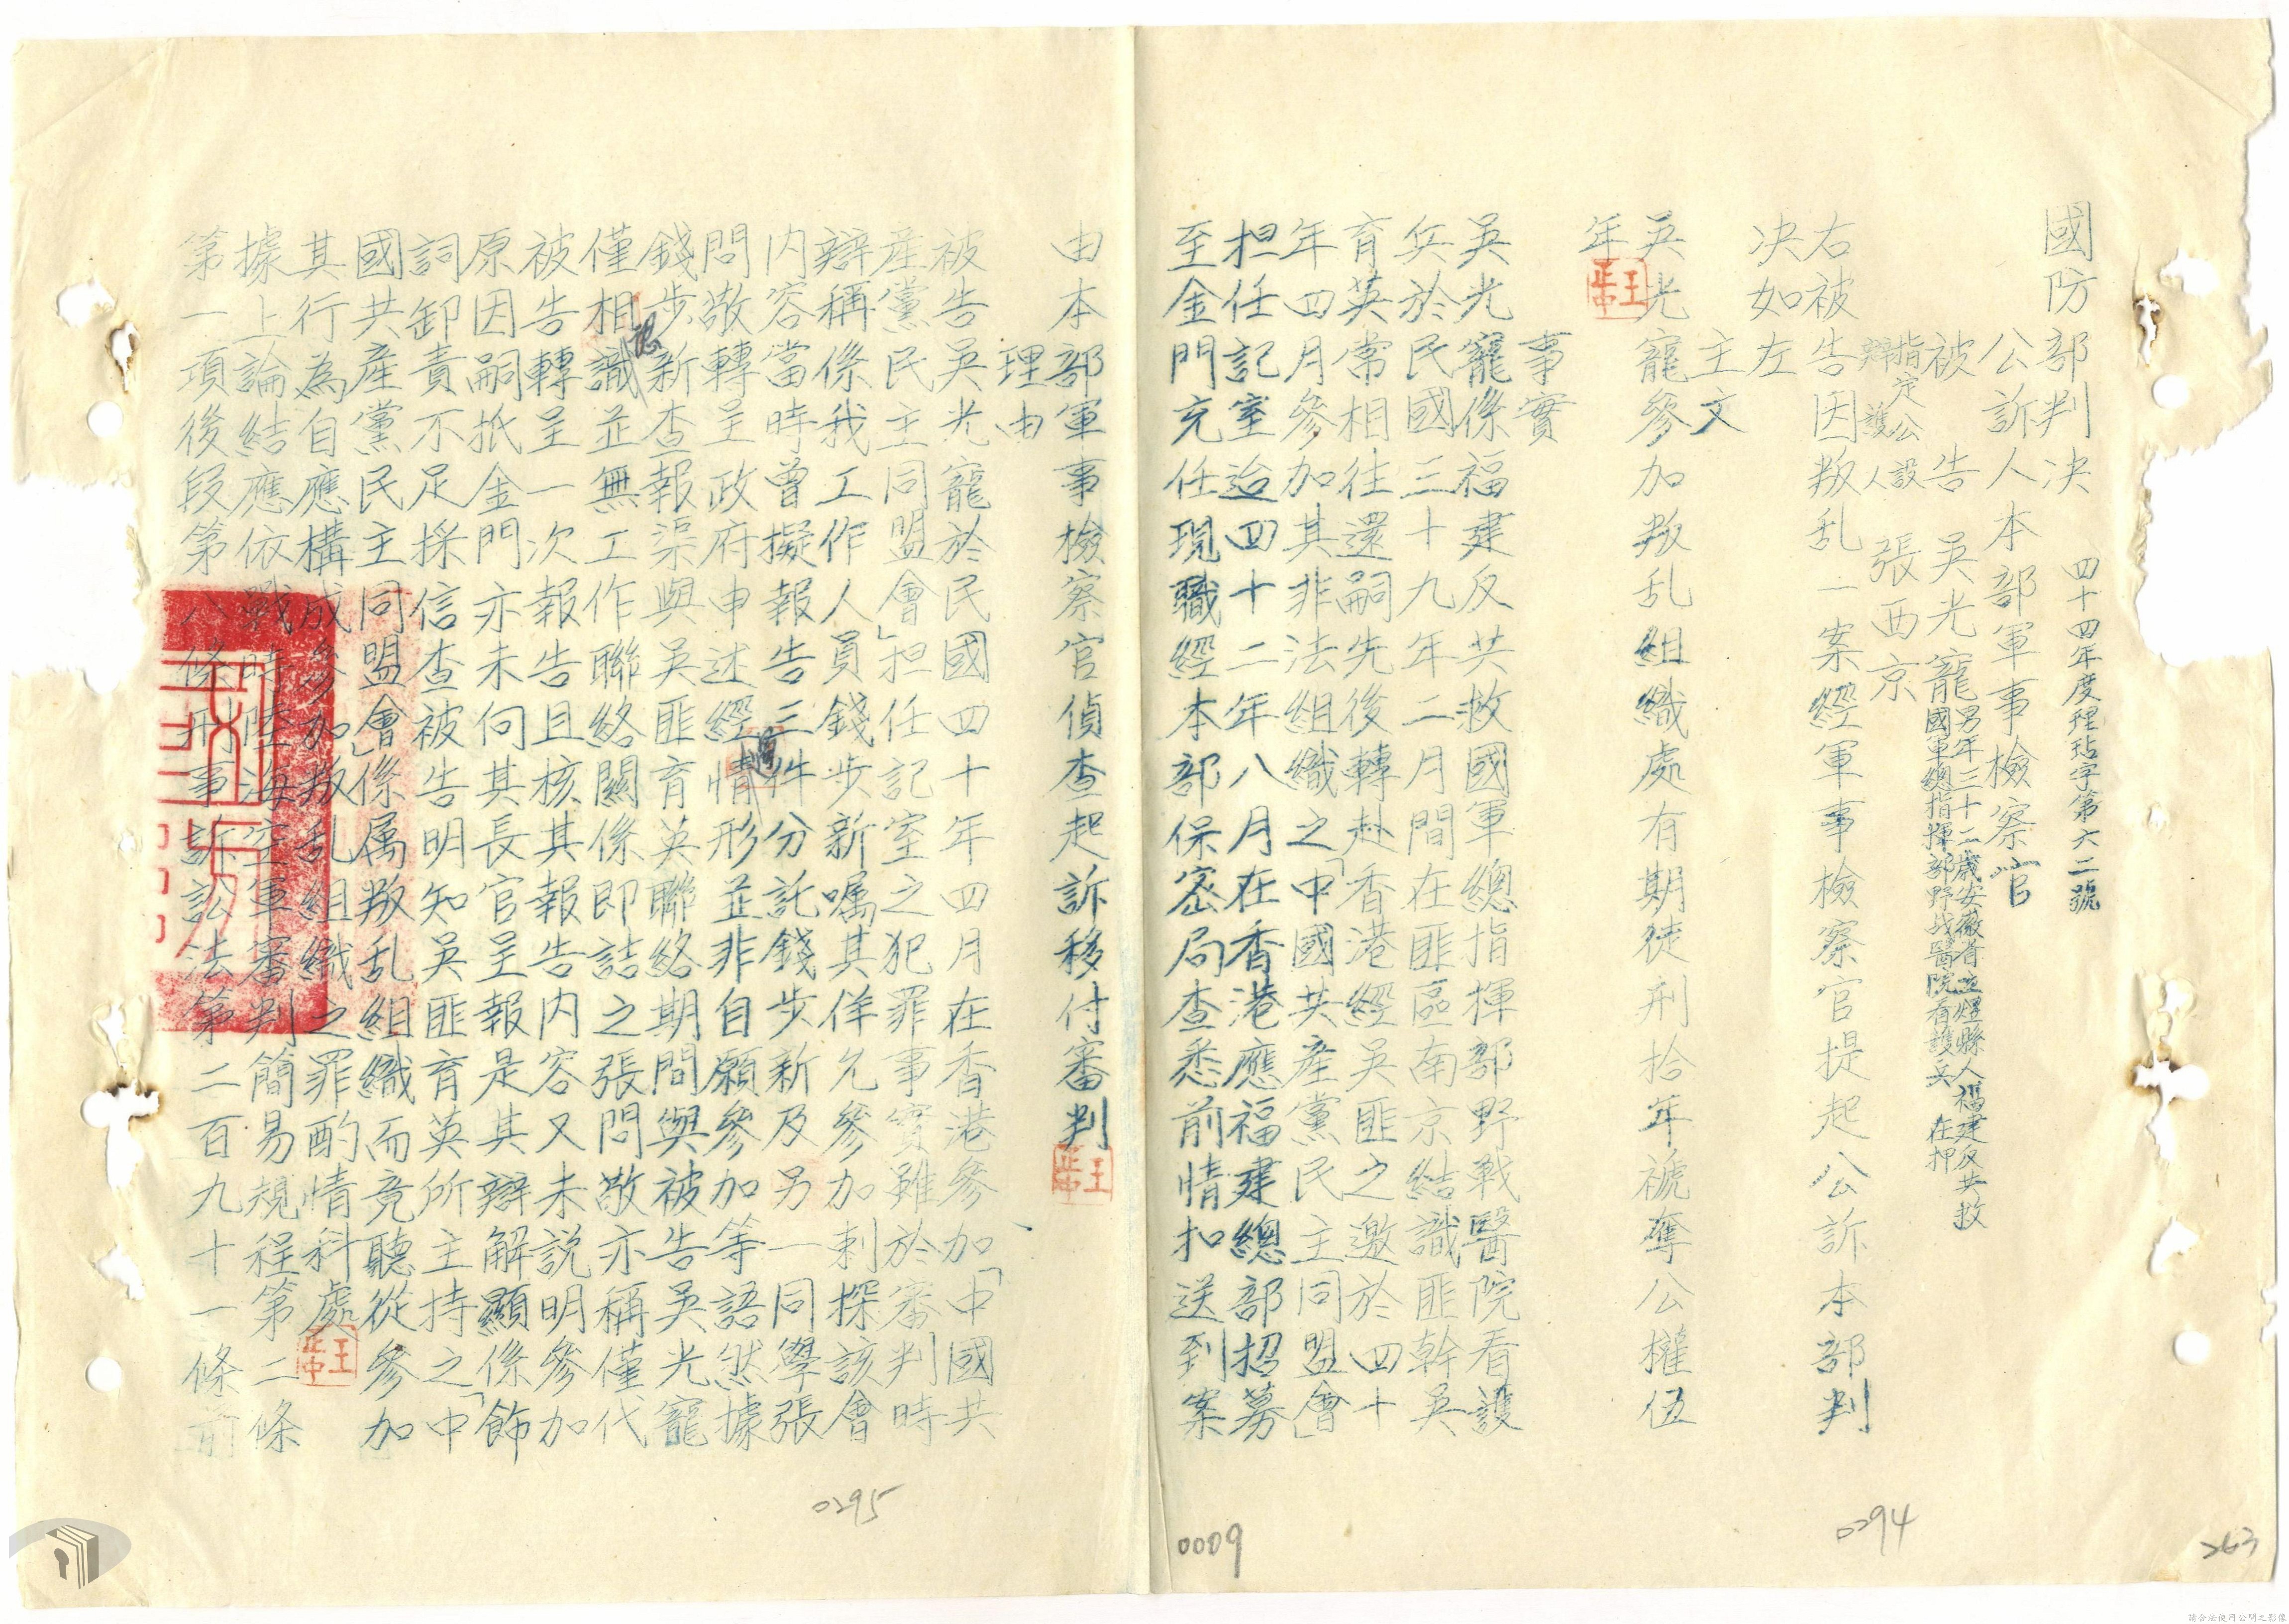 國防部判決
四十四年度理玷字第六二號
公訴人本部軍事檢察官
被告吳光寵男年三十二歲安徽省立煌縣人福建反共救
國軍總指揮部野战醫院看護兵 在押
指定公設
辯護人 張西京
右被告因叛乱一案經軍事檢察官提起公訴本部判
決如左
主文
吳光寵參加叛乱組織處有期徒刑拾年褫奪公權伍
年
事實
吳光寵係福建反共救國軍總指揮部野戰醫院看護
兵於民國三十九年二月間在匪區南京結識匪幹吳
育英常相往還嗣先後轉赴香港經吳匪之邀於四十
年四月參加其非法組織之「中國共產黨民主同盟會」
担任記室迨四十二年八月在香港應福建總部招募
至金門充任現職經本部保密局查悉前情扣送到案
由本部軍事檢察官偵查起訴移付審判
理由
被告吳光寵於民國四十年四月在香港參加「中國共
產黨民主同盟會」担任記室之犯罪事實雖於審判時
辯稱係我工作人員錢步新嘱其佯允參加刺探該會
内容當時曾擬報告三件分託錢步新及另一同學張
問敬轉呈政府申述經情形並非自願參加等語然據
錢步新查報渠與吳匪育英聯絡期間與被告吳光寵
僅相識並無工作聯絡關係即詰之張問敬亦稱僅代
被告轉呈一次報告且核其報告内容又未説明參加
原因嗣抵金門亦未向其長官呈報是其辯解顯係飾
詞卸責不足採信查被告明知吳匪育英所主持之「中
國共產黨民主同盟會」係属叛乱組織而竟聽從參加
其行為自應構成參加叛乱組織之罪酌情科處
據上論結應依戰時陸海空軍審判簡易規程第二條
第一項後段第八條刑事訴訟法第二百九十一條前
0295
0009
0294
263
請合法使用公開之影像